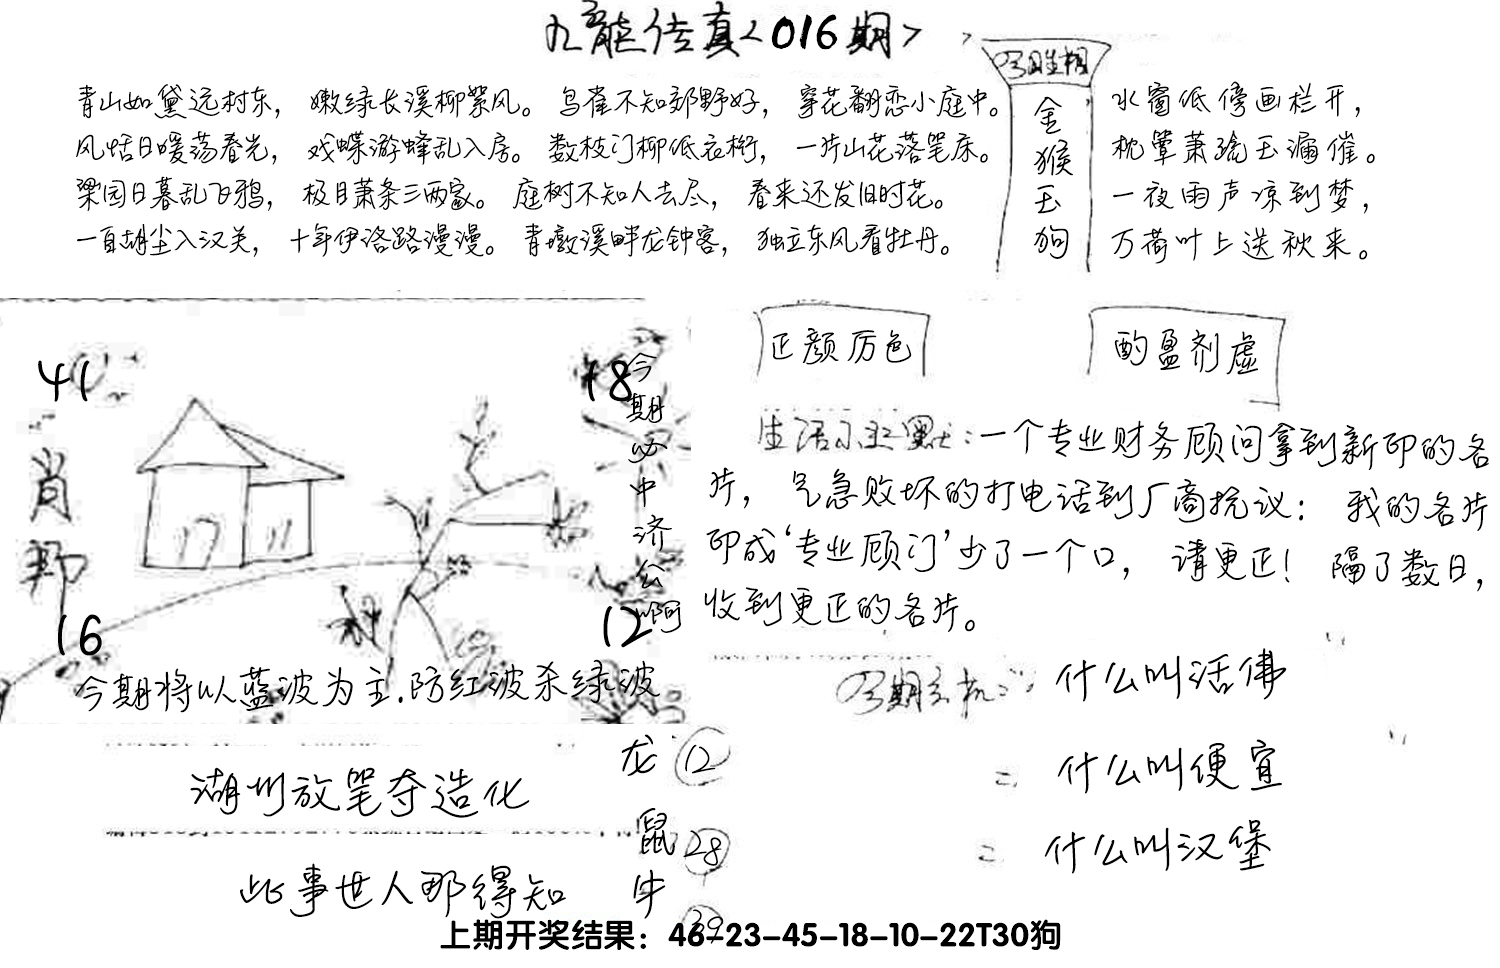 九龙传真<016期>
今期生相
青山如黛远村东，嫩绿长溪柳絮风。鸟雀不知郊野好，穿花翻恋小庭中。
风恬日暖荡春光，戏蝶游蜂乱入房。数枝门柳低衣桁，一片山花落笔床。
梁园日暮乱飞鸦，极目萧条三两家。庭树不知人去尽，春来还发旧时花。
一自胡尘入汉关，十年伊洛路漫漫。青墩溪畔龙钟客，独立东风看牡丹。
金猴玉狗
水窗低傍画栏开，
枕簟萧疏玉漏催。
一夜雨声凉到梦，
万荷叶上送秋来。
41
18
肖
16
12
今期必中济公啊
今期将以蓝波为主.防红波杀绿波
正颜厉色
酌盈剂虚
生活小幽默:一个专业财务顾问拿到新印的各
片，气急败坏的打电话到厂商抗议：我的各片
印成‘专业顾门’少了一个口，请更正！隔了数日，
收到更正的各片。
今期玄机：什么叫活佛
= 什么叫便宜
= 什么叫汉堡
湖州放笔夺造化
此事世人那得知
龙 12
鼠 28
牛 39
上期开奖结果：46-23-45-18-10-22T30狗